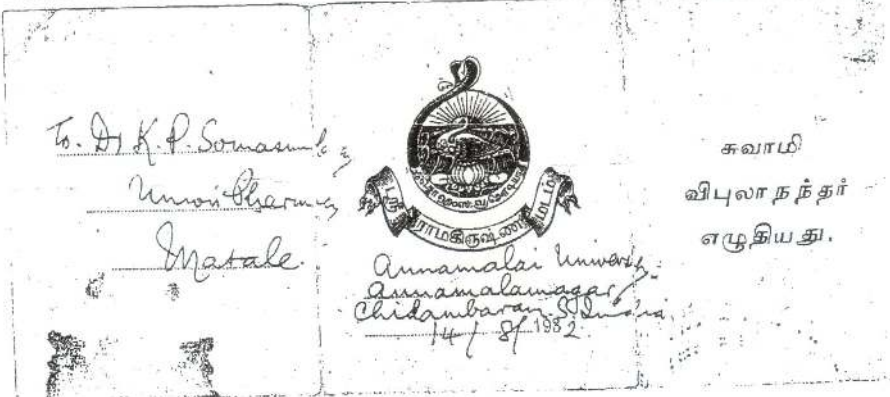 To. Dr K. P. Somasundaram
Union Pharmacy
Matale.
ஸ்ரீ ராமகிருஷ்ண மடம்
Annamalai University
Annamalainagar
Chidambaram. S. India
14/8/1932
சுவாமி
விபுலாநந்தர்
எழுதியது.